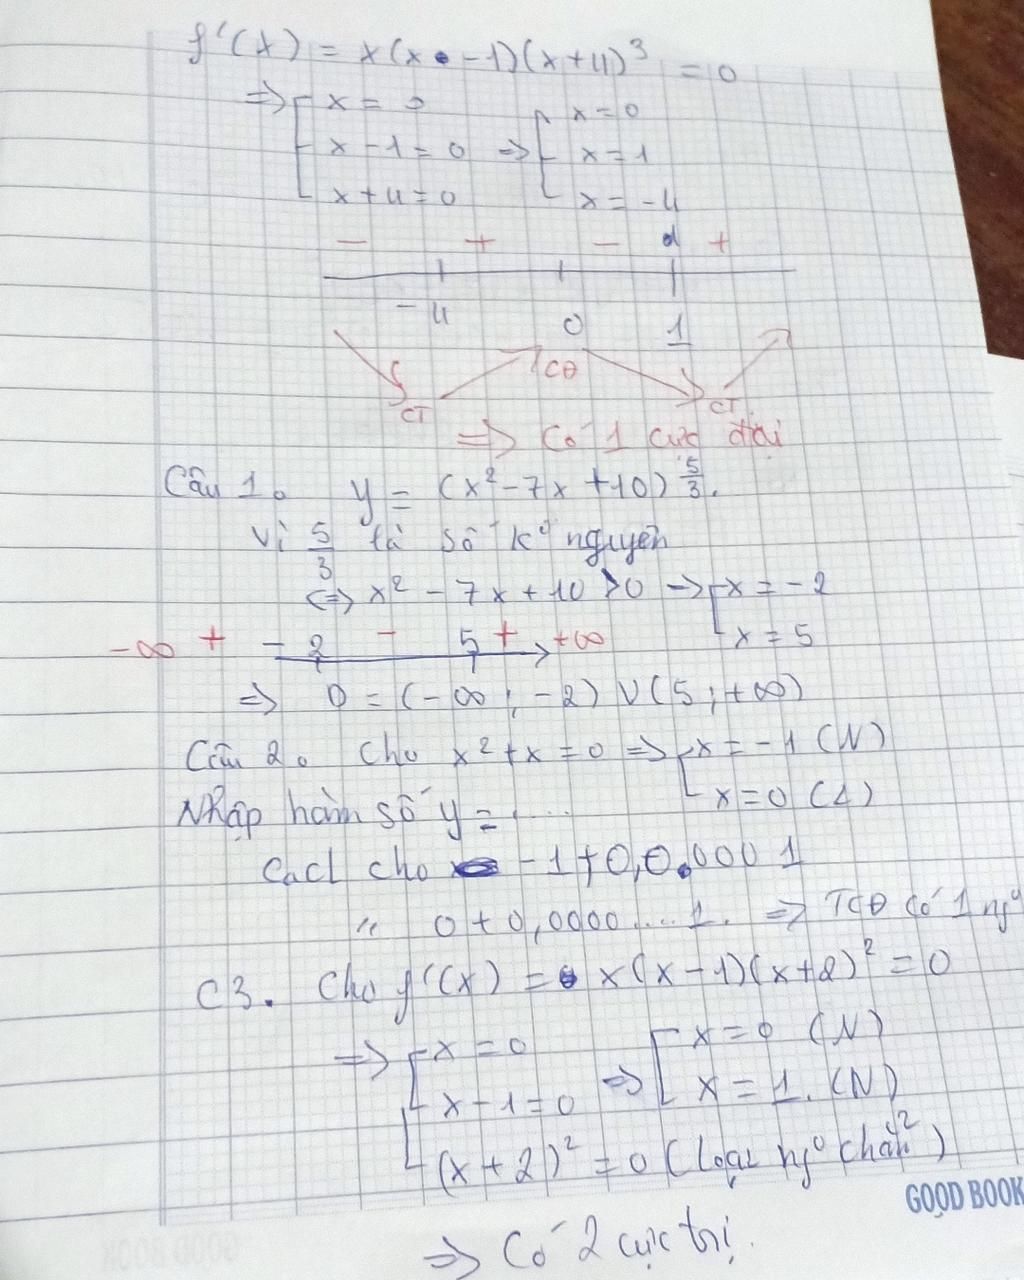 f'(x) = x(x - 1)(x+4)³ = 0
=> [ x = 0 [ x = 0
x - 1 = 0 => x = 1
x + 4 = 0 x = -4
- + - +
-4 0 1
CT CĐ CT
=> Có 1 cực đại
Câu 1. y = (x² - 7x + 10)^{5/3}.
Vì 5/3 là số kº nguyên
<=> x² - 7x + 10 > 0 -> [ x = -2
x = 5
-∞ + -2 - 5 + +∞
=> D = (-∞; -2) ∪ (5; +∞)
Câu 2. Cho x² + x = 0 => [ x = -1 (N)
x = 0 (L)
Nhập hàm số y = ....
Cacl cho -1 + 0,0.0001
" 0 + 0,0000....1. => TCĐ có 1 ngº
C3. Cho f'(x) = x(x - 1)(x+2)² = 0
=> [ x = 0 [ x = 0 (N)
x - 1 = 0 => x = 1. (N)
(x + 2)² = 0 (loại ngº chẵn²)
GOOD BOOK
=> Có 2 cực trị.